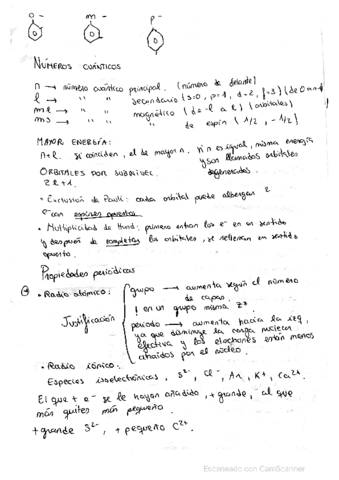 o- m- p-
NÚMEROS CUÁNTICOS
n → número cuántico principal. (número de delante)
l → " " secundario (s=0, p=1, d=2, f=3) (de 0 a n-1)
ml → " " magnético (de -l a l) (orbitales)
ms → " " de espín (1/2, -1/2)
MAYOR ENERGÍA:
n+l. Si coinciden, el de mayor n. Si n es igual, misma energía
y son llamados orbitales
degenerados.
ORBITALES POR SUBNIVEL
2l+1.
• Exclusión de Pauli: cada orbital puede albergar 2
e- con espines opuestos
• Multiplicidad de Hund: primero entran los e- en un sentido
y después de completar los orbitales, se rellenan en sentido
opuesto.
Propiedades periódicas
• Radio atómico:
Justificación
grupo → aumenta según el número
de capas.
! en un grupo misma Z*
periodo → aumenta hacia la izq,
ya que disminuye la carga nuclear
efectiva y los electrones están menos
atraídos por el núcleo.
• Radio iónico:
Especies isoelectrónicas, S²⁻, Cl⁻, Ar, K⁺, Ca²⁺
El que + e- se le hayan añadido, + grande, al que
más quites más pequeño.
+ grande S²⁻, + pequeño C²⁺
Escaneado con CamScanner